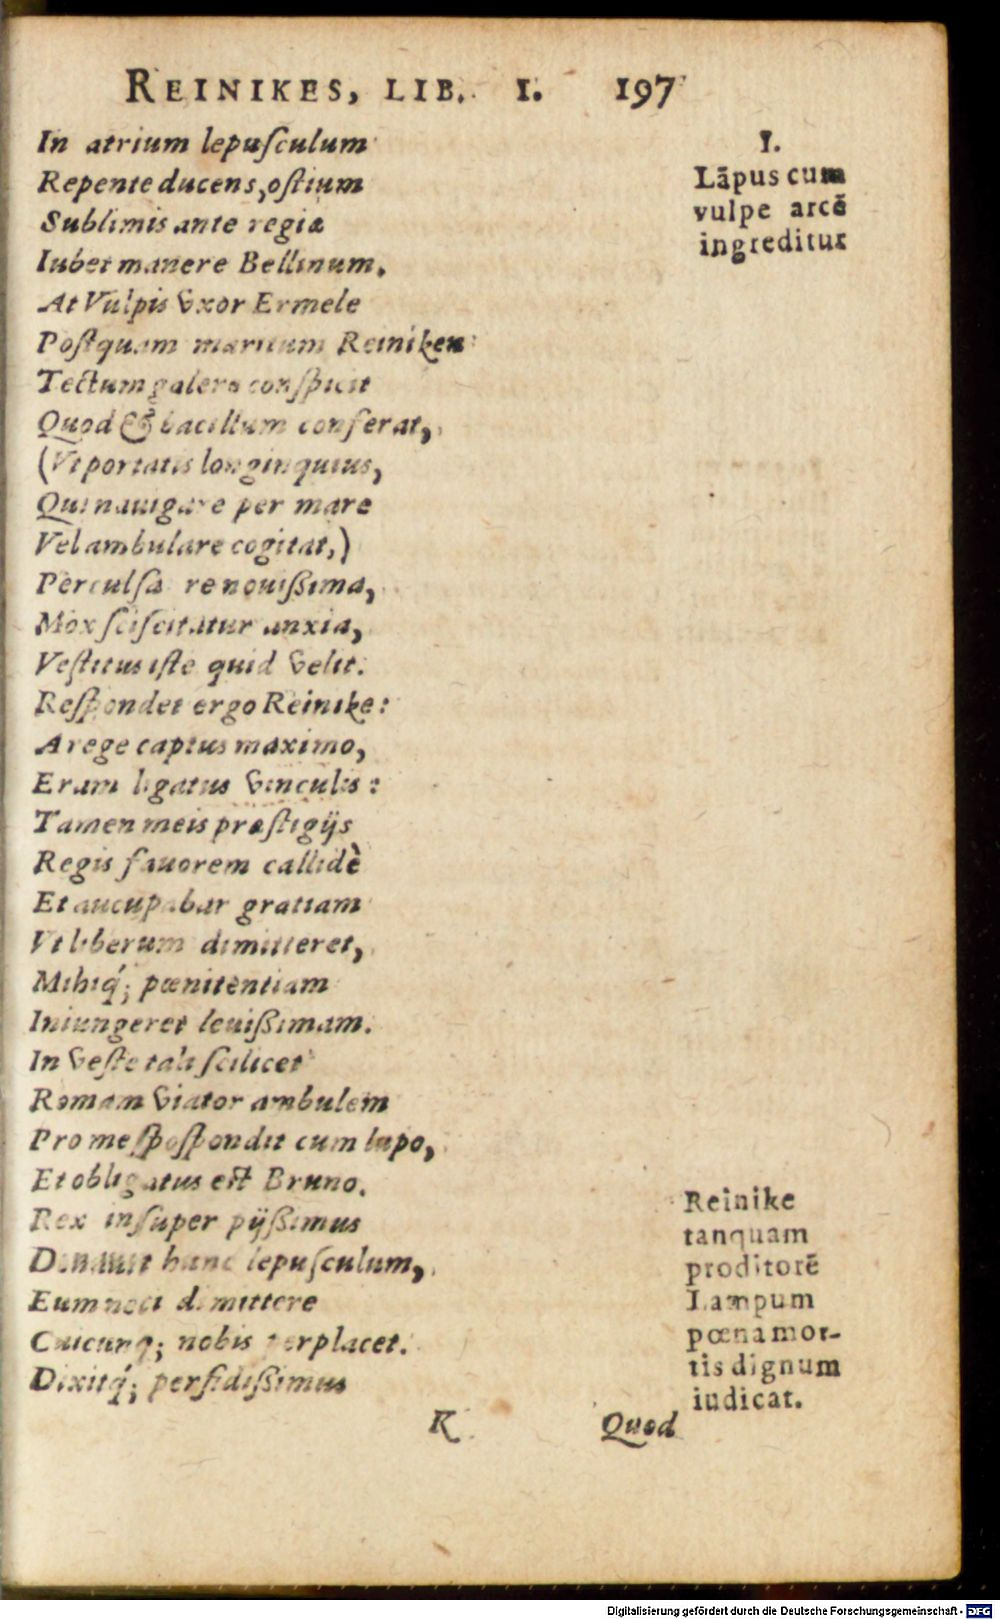 REINIKES, LIB. I. 197
In atrium lepuſculum
Repente ducens, oſtium
Sublimis ante regiæ
Iubet manere Bellinum.
At Vulpis vxor Ermele
Poſtquam maritum Reiniken
Tectum galero conſpicit
Quod & bacillum conferat,
(Vt portatis longinquius,
Qui nauigare per mare
Vel ambulare cogitat,)
Perculſa re nouißima,
Mox ſciſcitatur anxia,
Veſtitus iſte quid velit.
Reſpondet ergo Reinike:
A rege captus maximo,
Eram ligatus vinculis:
Tamen meis præſtigijs
Regis fauorem callidè
Et aucupabar gratiam
Vt liberum dimitteret,
Mihiq́; pœnitentiam
Iniungeret leuißimam.
In veſte tali ſcilicet
Romam viator ambulem
Pro me ſpoſpondit cum lupo,
Et obligatus eſt Bruno.
Rex inſuper pijßimus
Donauit hunc lepuſculum,
Eum neci dimittere
Cuicunq; nobis perplacet.
Dixitq́; perfidißimus
K Quod
I.
Lāpus cum
vulpe arcē
ingreditur
Reinike
tanquam
proditorē
Lampum
pœna mor-
tis dignum
iudicat.
Digitalisierung gefördert durch die Deutsche Forschungsgemeinschaft - DFG